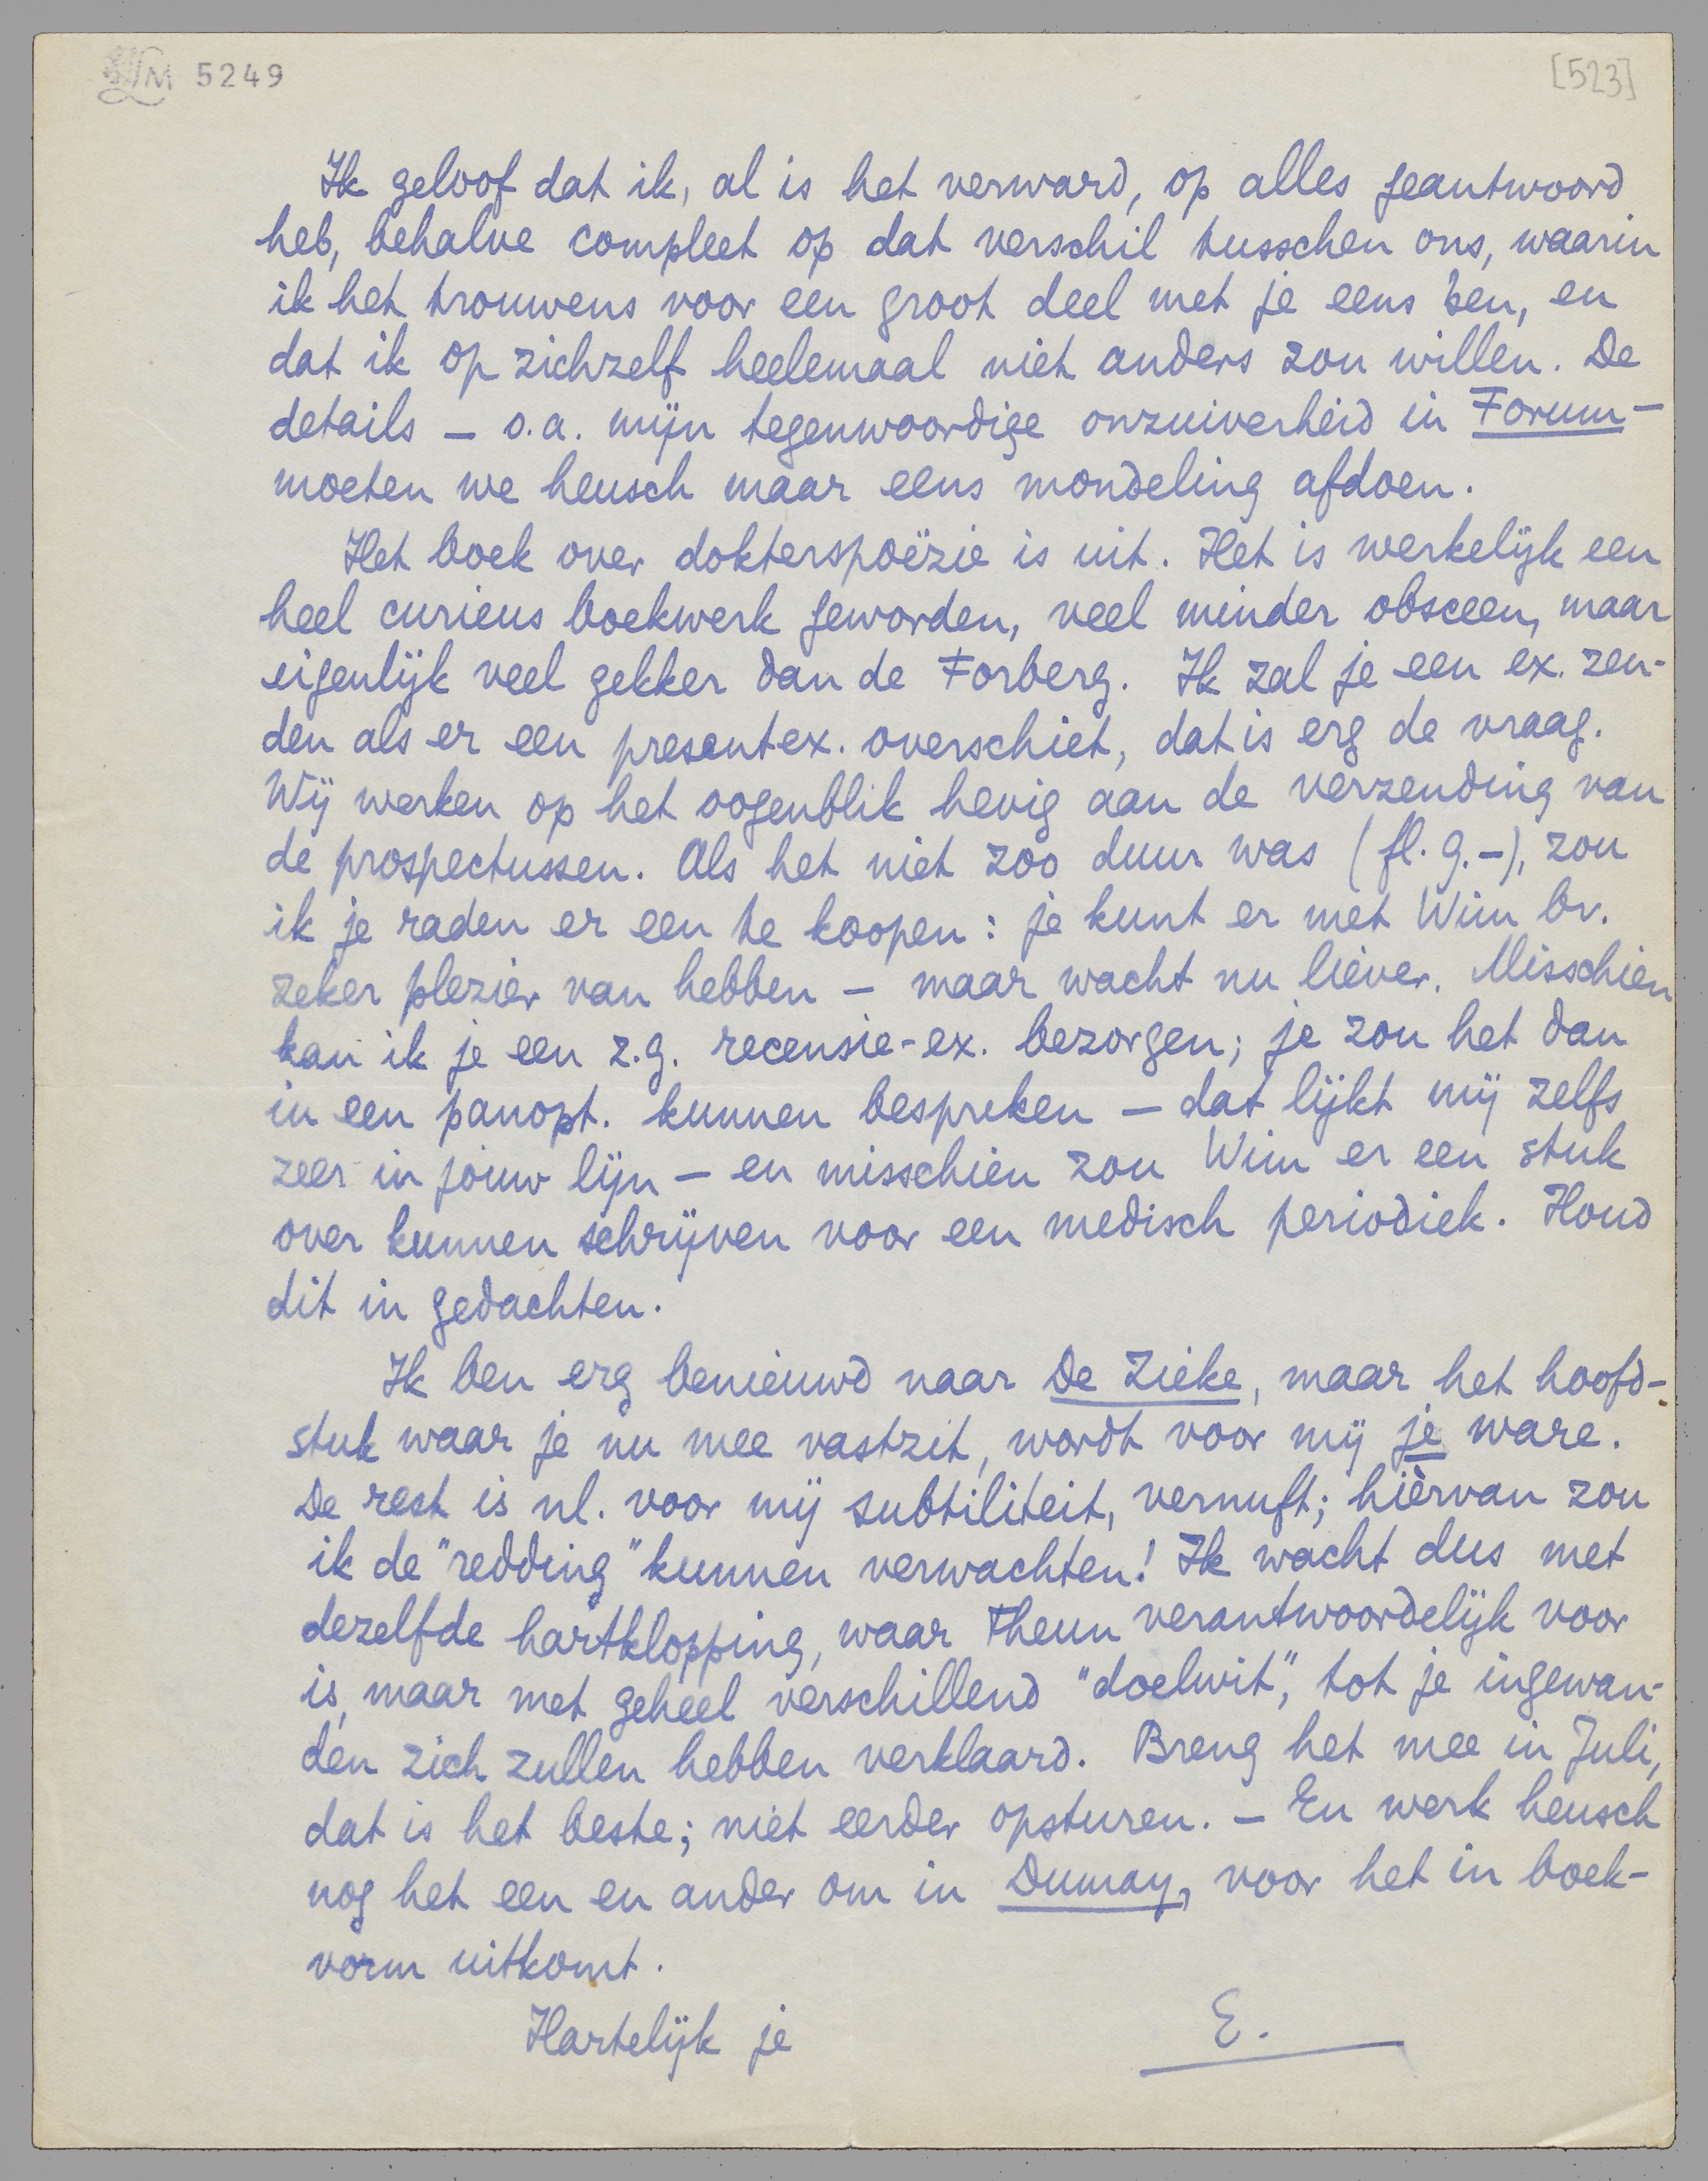 LM 5249
[523]
Ik geloof dat ik, al is het verward, op alles geantwoord
heb, behalve compleet op dat verschil tusschen ons, waarin
ik het trouwens voor een groot deel met je eens ben, en
dat ik op zichzelf heelemaal niet anders zou willen. De
details – o.a. mijn tegenwoordige onzuiverheid in Forum –
moeten we heusch maar eens mondeling afdoen.
Het boek over dokterspoëzie is uit. Het is werkelijk een
heel curieus boekwerk geworden, veel minder obsceen, maar
eigenlijk veel gekker dan de Forberg. Ik zal je een ex. zen-
den als er een present ex. overschiet, dat is erg de vraag.
Wij werken op het oogenblik hevig aan de verzending van
de prospectussen. Als het niet zoo duur was (fl. 9.–), zou
ik je raden er een te koopen: je kunt er met Wim bv.
zeker plezier van hebben – maar wacht nu liever. Misschien
kan ik je een z.g. recensie-ex. bezorgen; je zou het dan
in een panopt. kunnen bespreken – dat lijkt mij zelfs
zeer in jouw lijn – en misschien zou Wim er een stuk
over kunnen schrijven voor een medisch periodiek. Houd
dit in gedachten.
Ik ben erg benieuwd naar De Zieke, maar het hoofd-
stuk waar je nu mee vastzit, wordt voor mij je ware.
De rest is nl. voor mij subtiliteit, vernuft; hièrvan zou
ik de "redding" kunnen verwachten! Ik wacht dus met
dezelfde hartklopping, waar Theun verantwoordelijk voor
is, maar met geheel verschillend "doelwit", tot je ingewan-
den zich zullen hebben verklaard. Breng het mee in Juli,
dat is het beste; niet eerder opsturen. – En werk heusch
nog het een en ander om in Dumay, voor het in boek-
vorm uitkomt.
Hartelijk je E.